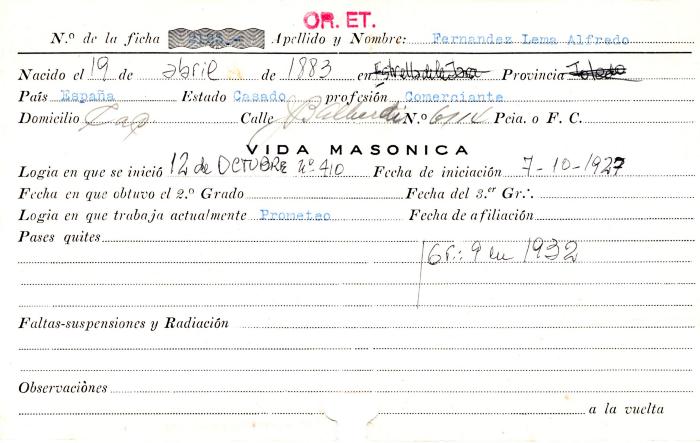 OR. ET.
N.º de la ficha Apellido y Nombre: Fernandez Lema Alfredo
Nacido el 19 de abril de 1883 en Provincia Toledo
País España Estado Casado profesión Comerciante
Domicilio Cap Calle N.º Pcia. o F. C.
VIDA MASONICA
Logia en que se inició 12 de OCTUBRE Nº 410 Fecha de iniciación 7-10-1927
Fecha en que obtuvo el 2.º Grado Fecha del 3.er Gr∴
Logia en que trabaja actualmente Prometeo Fecha de afiliación
Pases quites
Gr∴ 9 en 1932
Faltas-suspensiones y Radiación
Observaciònes
a la vuelta